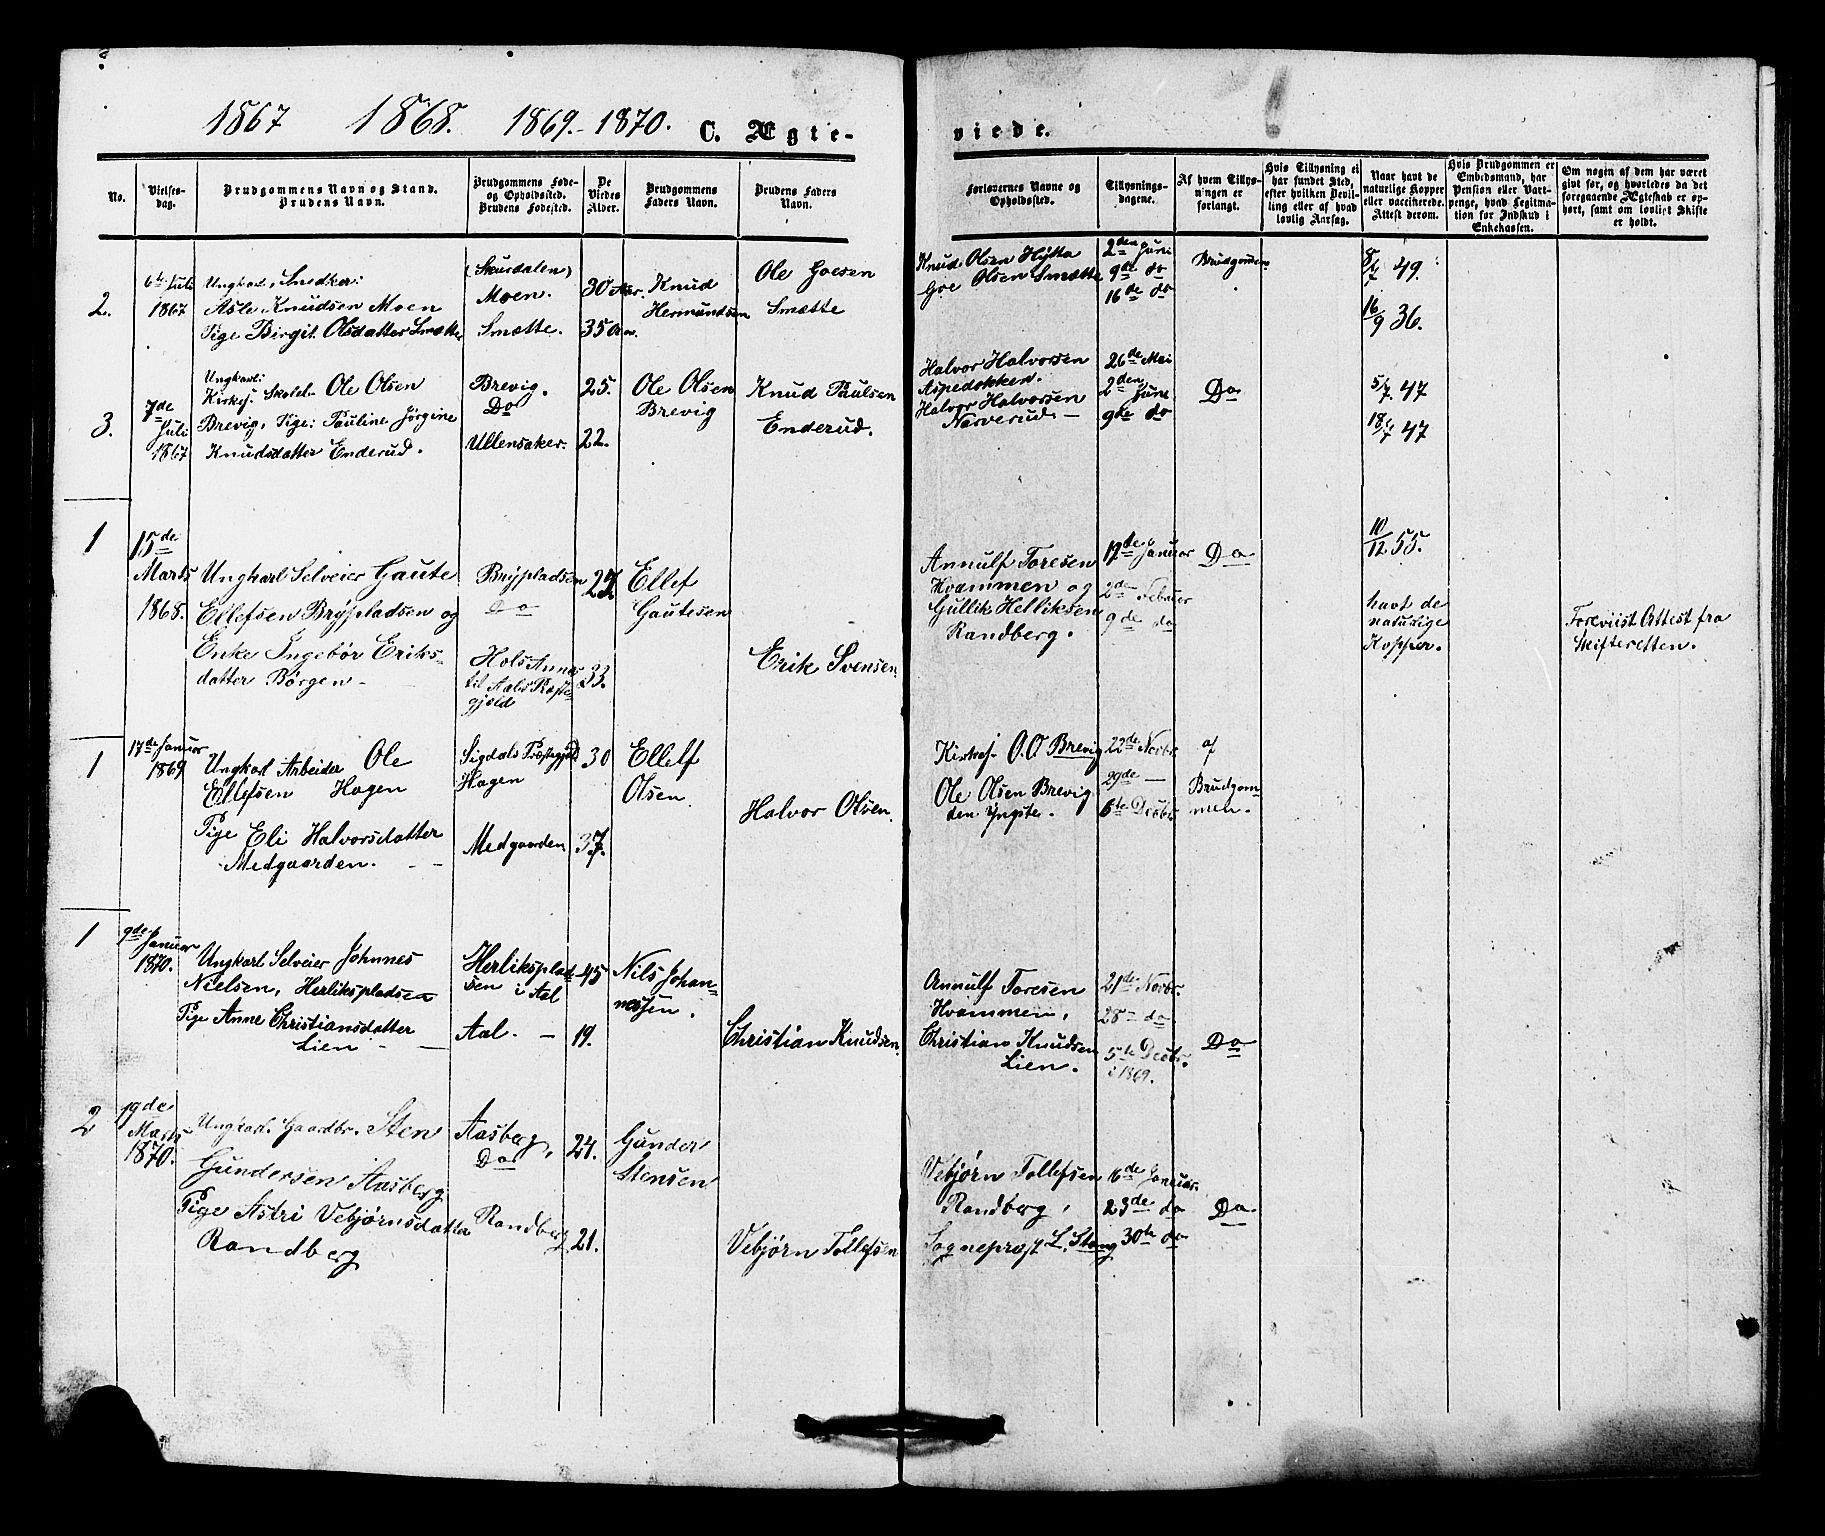 1867 1868. 1869.-1870. C. Ægte-
No.
Vielses-
dag.
Brudgommens Navn og Stand.
Brudens Navn.
Brudgommens Føde-
og Opholdssted.
Brudens Fødested.
De
Viedes
Alder.
Brudgommens
Faders Navn.
Brudens Faders
Navn.
2.
6te Juli
1867
Ungkarl, Snedker:
Asle Knudsen Moen
Pige Birgit Olsdatter Smætte
(Skurdalen)
Moen.
Smætte.
30 Aar.
35 Aar.
Knud
Hermundsen
Ole Goesen
Smætte
3.
7de
Juli
1867
Ungkarl:
Kirkes: Skolel. Ole Olsen
Brevig, Pige: Pauline Jörgine
Knudsdatter Enderud.
Brevig.
Do
Ullensaker.
25.
22.
Ole Olsen
Brevig
Knud Paulsen
Enderud.
1
15de
Marts
1868.
Ungkarl Selveier Gaute
Ellefsen Brÿpladsen og
Enke Ingebör Eriks-
datter Börgen -
Brÿpladsen
Do
Hols Annex
til Aals Præste-
gjeld
27.
33.
Ellef
Gautesen
Erik Svensen.
1
17de Januar
1869
Ungkarl Arbeider Ole
Ellefsen Hagen
Pige Eli Halvorsdatter
Medgaarden. - -
Sigdals Præstegjeld
Hagen
Medgaarden
30
37.
Ellef
Olsen.
Halvor Olsen.
1
9de
Januar
1870.
Ungkarl Selveier Johnnes
Nielsen, Herlikspladsen
Pige Anne Christiansdatter
Lien - -
Herliksplad-
sen i Aal
Aal. -
45
19.
Nils Johan-
nessen.
Christian Knudsen.
2
19de
Marts
1870.
Ungkarl. Gaardbr. Sten
Gundersen Aasberg
Pige Astri Vebjørnsdatter
Randberg
Aasberg,
Do
Randberg
24.
21.
Gunder
Stensen
Vebjörn Tollefsen
viede.
Forlovernes Navne og
Opholdssted.
Tillysnings-
dagene.
Af hvem Tillys-
ningen er
forlangt.
Hvis Tillysning ei
har fundet Sted,
efter hvilken Bevil-
ling eller af hvad
lovlig Aarsag.
Naar havt de
naturlige Kopper
eller vaccinerede.
Attest derom.
Hvis Brudgommen er
Embedsmand, har
Pension eller Vart-
penge, hvad Legitima-
tion for Indskud i
Enkekassen.
Om nogen af dem har været
givt før, og hvorledes da det
foregaaende Ægteskab er op-
hørt, samt om lovligt Skifte
er holdt.
Knud Olsen Hÿtta
Goe Olsen Smætte
2den Juni
9de do
16de do
Brudgommen
8/7 49.
16/9 36.
Halvor Halvorsen
Aspedokken.
Halvor Halvorsen
Narverud. -
26de Mai
2den Juni
9de do
Do
5/7 47
18/7 47
Annulf Toresen
Hvammen og
Gullik Helliksen
Randberg.
12de Januar
2de Februar
9de do
Do
10/12 55.
havt de
naturlige
Kopper.
Foreviist Attest fra
Skifteretten.
Kirkes. O. O Brevig
Ole Olsen Brevig
den Yngste.
22de Novbr.
29de -
6te Decbr
af
Brudgom-
men.
Annulf Toresen
Hvammen,
Christian Knudsen
Lien.
21de Novbr.
28de do
5te Decbr.
i 1869.
Do
Vebjørn Tollefsen
Randberg,
Sognepræst L. Stang
16de Januar.
23de do
30te do
Do